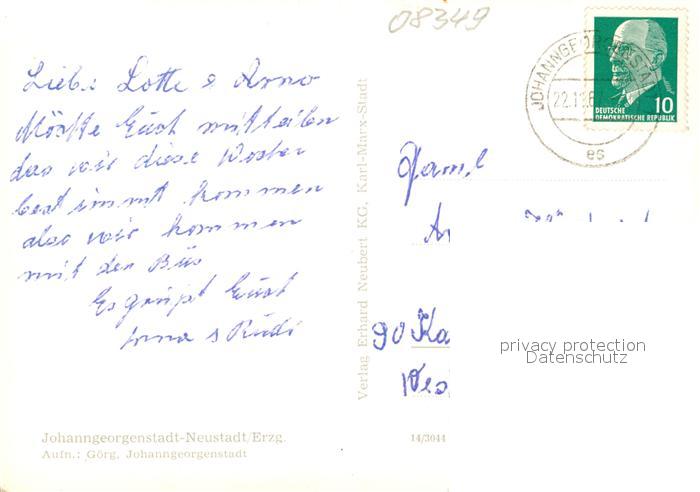 08349
Liebe Lotte & Arno
Möchte Euch mitteilen
das wir diese Woche
bestimmt kommen
also wir kommen
mit den Bus
Es grüßt Euch
& Rudi
Johanngeorgenstadt-Neustadt/Erzg.
Aufn.: Görg, Johanngeorgenstadt
Verlag Erhard Neubert KG, Karl-Marx-Stadt
14/3044
JOHANNGEORGENSTADT
22.11.6
es
DEUTSCHE
DEMOKRATISCHE REPUBLIK
10
Faml
Ar
90 Ka
Wes
privacy protection
Datenschutz